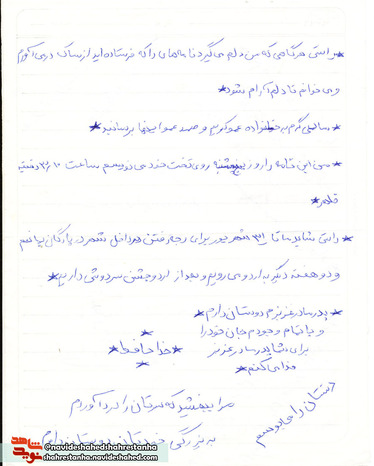 ★ راستی هرگاهی که من دلم می‌گیرد نامه‌های را که فرستاده‌اید از ساک در می‌آورم
و می‌خوانم تا دلم آرام شود ★
★ سلام گرم به خانواده عمو کریم و عمو اینها برسانید ★
★ من این نامه را روز پنجشنبه روی تخت خود می‌نویسم ساعت ۳/۱۰ دقیقه
ظهر ★
★ راستی شاید ما تا ۳۱ شهریور برای رفتن به داخل شهر در پادگان باشیم
و دو هفته دیگر به اردو می‌رویم و بعد از اردو جشن سردوشی داریم ★
★ پدر مادر عزیزم دوستتان دارم ★
و با تمام وجودم جان خود را
برای شما پدر مادر عزیز
فدا می‌کنم ★
★ خداحافظ ★
دستتان را می‌بوسم
مرا ببخشید که سرتان را درد آوردم
به بزرگی خودتان
نوید شاهد
@navideshahedshahrestanha
shahrestanha.navideshahed.com